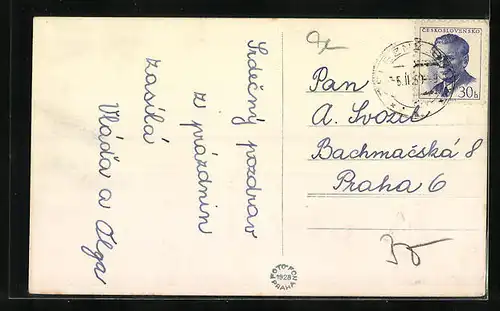 Srdečný pozdrav
z prázdnin
zasílá
Vláďa a Olga
ČESKOSLOVENSKO
30h
Pan
A. Svozil
Bachmačská 8
Praha 6
FOTO-FON
1928
PRAHA